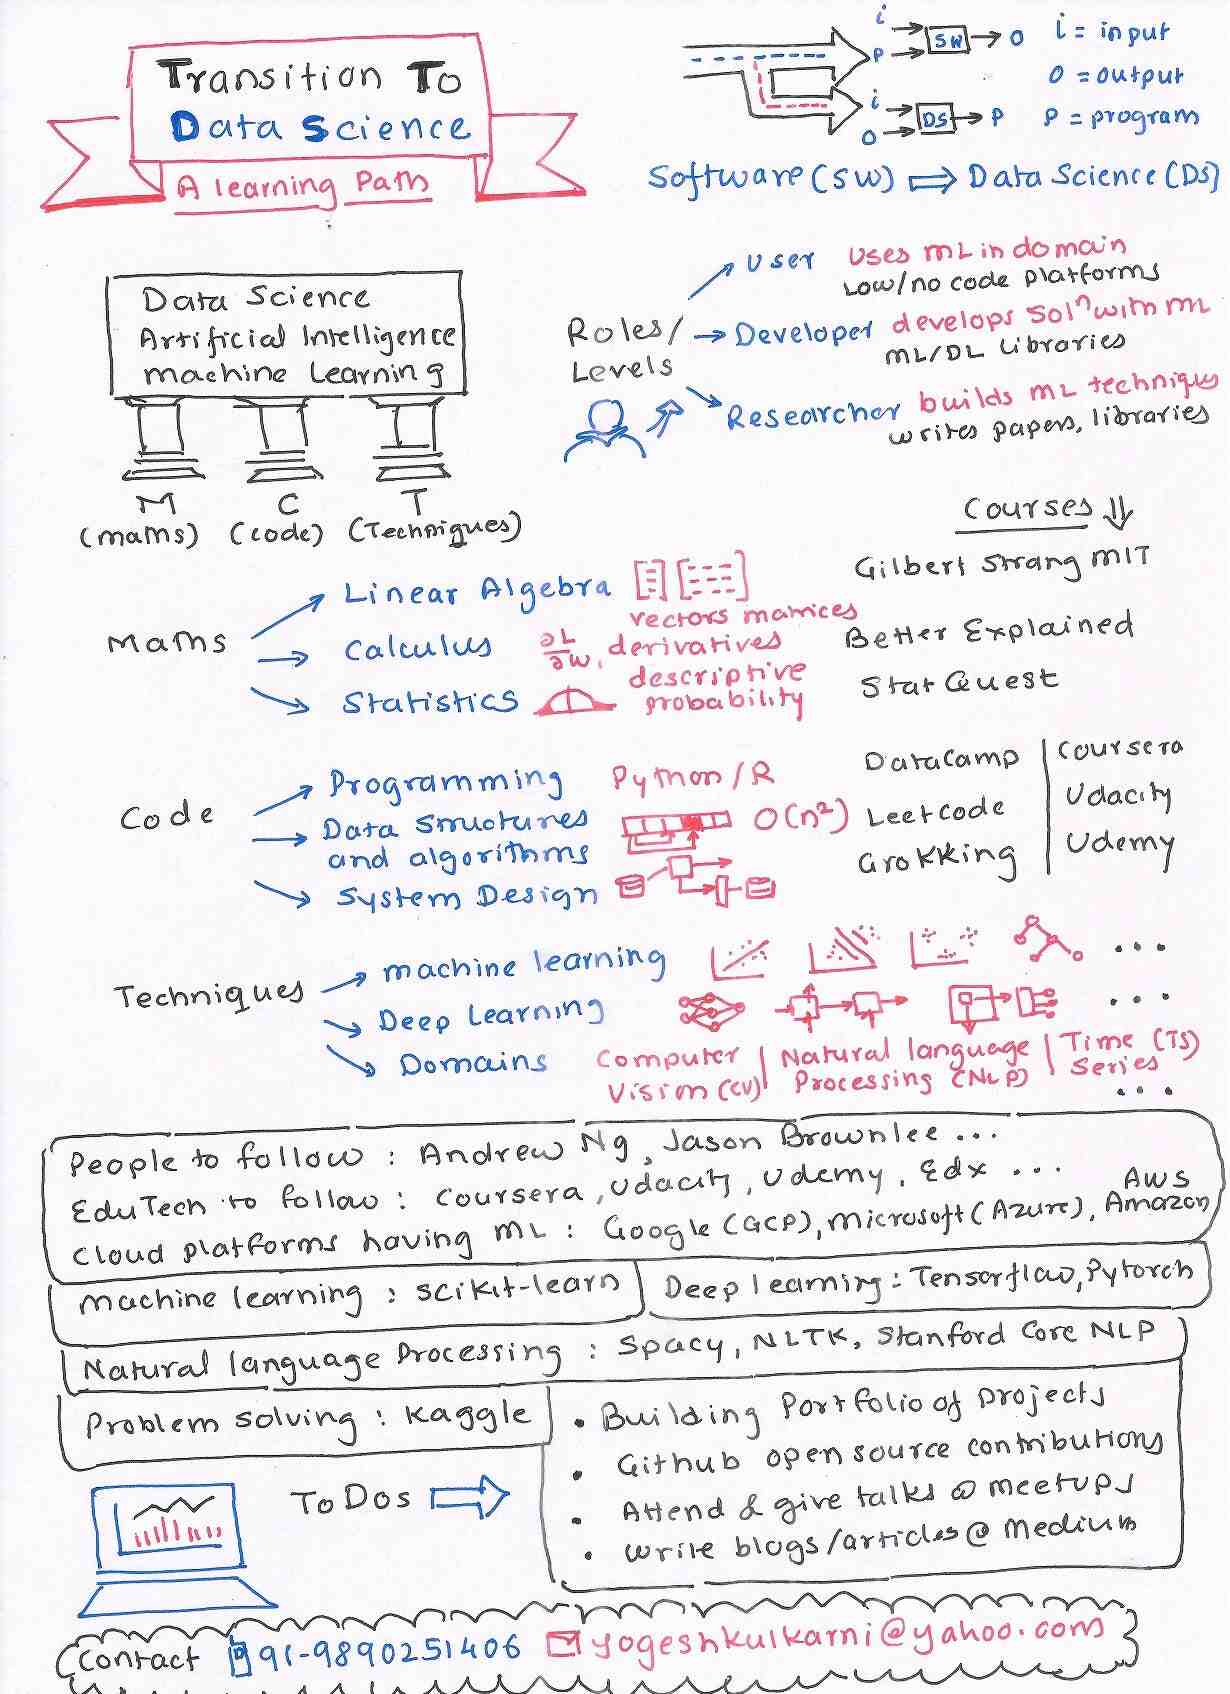 Transition To
Data Science
A learning Path
i
P
SW
O
i = input
O = output
P = program
i
O
DS
P
Software (SW) ⇒ Data Science (DS)
Data Science
Artificial Intelligence
Machine Learning
M
(maths)
C
(code)
T
(Techniques)
Roles/
Levels
→ User
Uses ML in domain
Low/no code platforms
→ Developer
develops Solⁿ with ML
ML/DL libraries
→ Researcher
builds ML techniques
writes papers, libraries
Courses ⇓
Maths
→ Linear Algebra
vectors matrices
Gilbert Strang MIT
→ Calculus
∂L/∂W, derivatives
Better Explained
→ Statistics
descriptive
probability
StatQuest
Code
→ Programming
Python / R
DataCamp
→ Data Structures
and algorithms
O(n²)
Leetcode
→ System Design
Grokking
Coursera
Udacity
Udemy
Techniques
→ Machine learning
...
→ Deep Learning
...
→ Domains
Computer
Vision (CV)
Natural language
Processing (NLP)
Time (TS)
Series
...
People to follow : Andrew Ng, Jason Brownlee ...
EduTech to follow : Coursera, Udacity, Udemy, Edx ...
Cloud platforms having ML : Google (GCP), Microsoft (Azure), AWS
Amazon
Machine learning : scikit-learn
Deep learning : Tensorflow, Pytorch
Natural language Processing : Spacy, NLTK, Stanford Core NLP
Problem solving : Kaggle
ToDos
• Building Portfolio of projects
• Github open source contributions
• Attend & give talks @ meetups
• write blogs/articles @ Medium
Contact 91-9890251406 yogeshkulkarni@yahoo.com